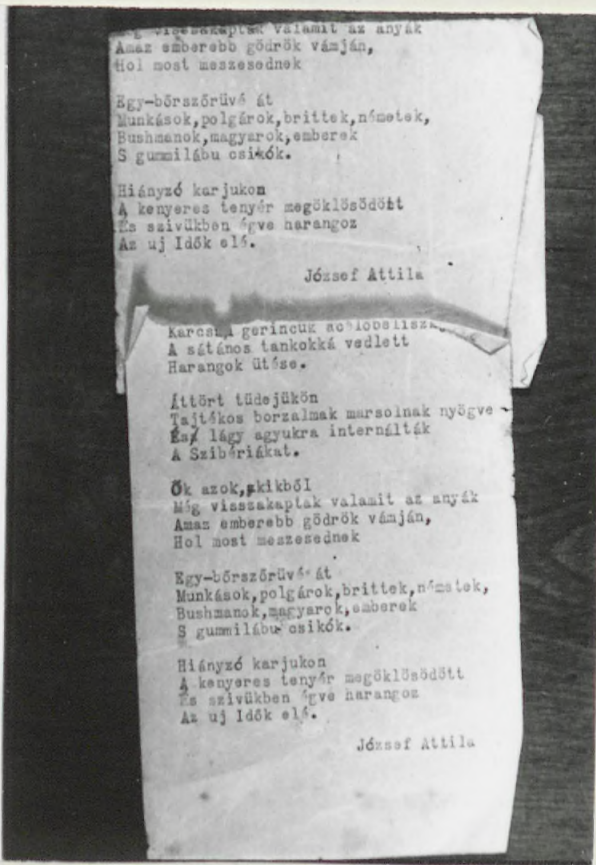 Még visszakaptak valamit az anyák
Amaz emberebb gödrök vámján,
Hol most meszesednek
Egy-bőrszőrüvé át
Munkások,polgárok,brittek,németek,
Bushmanok,magyarok,emberek
S gummilábu csikók.
Hiányzó karjukon
A kenyeres tenyér megöklösödött
És szivükben égve harangoz
Az uj Idők elé.
József Attila
gerincük
A sátános tankokká vedlett
Harangok ütése.
Áttört tüdejükön
Tajtékos borzalmak marsolnak nyögve
És lágy agyukra internálták
A Szibériákat.
Ők azok,akikből
Még visszakaptak valamit az anyák
Amaz emberebb gödrök vámján,
Hol most meszesednek
Egy-bőrszőrüvé át
Munkások,polgárok,brittek,németek,
Bushmanok,magyarok,emberek
S gummilábu csikók.
Hiányzó karjukon
A kenyeres tenyér megöklösödött
És szivükben égve harangoz
Az uj Idők elé.
József Attila